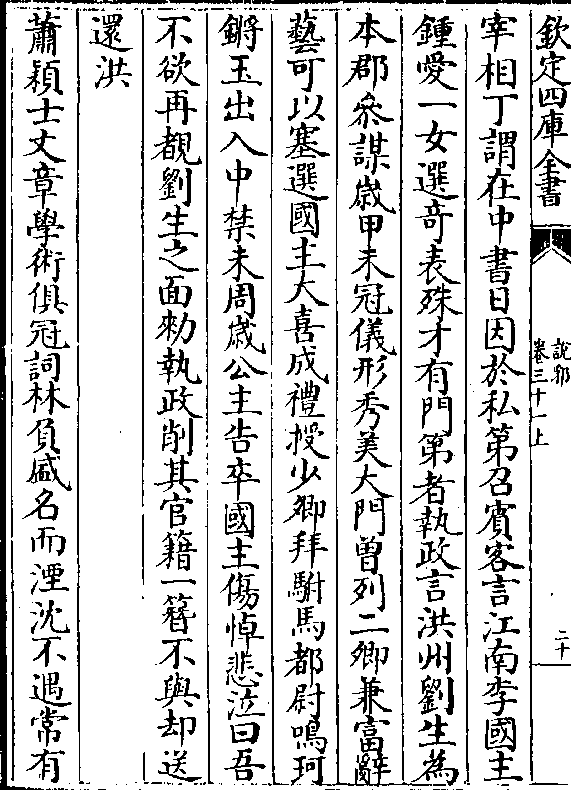 欽定四庫全書
說郛
卷三十一上
二十
宰相丁謂在中書日因於私第召賓客言江南李國主
鍾愛一女選竒表殊才有門第者執政言洪州劉生為
本郡叅謀嵗甲未冠儀形秀美大門曽列二卿兼富辭
藝可以塞選國主大喜成禮授少卿拜駙馬都尉鳴珂
鏘玉出入中禁未周歳公主告卒國主傷悼悲泣曰吾
不欲再覩劉生之面勑執政削其官籍一簪不與却送
還洪
蕭穎士文章學術俱冠詞林負盛名而湮沈不遇常有